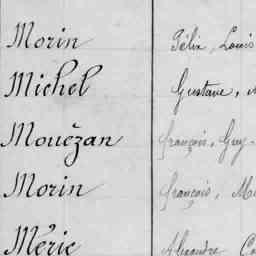 Morin Félix, Louis
Michel Gustave,
Mouëzan François, Guy
Morin François,
Méric Alexandre